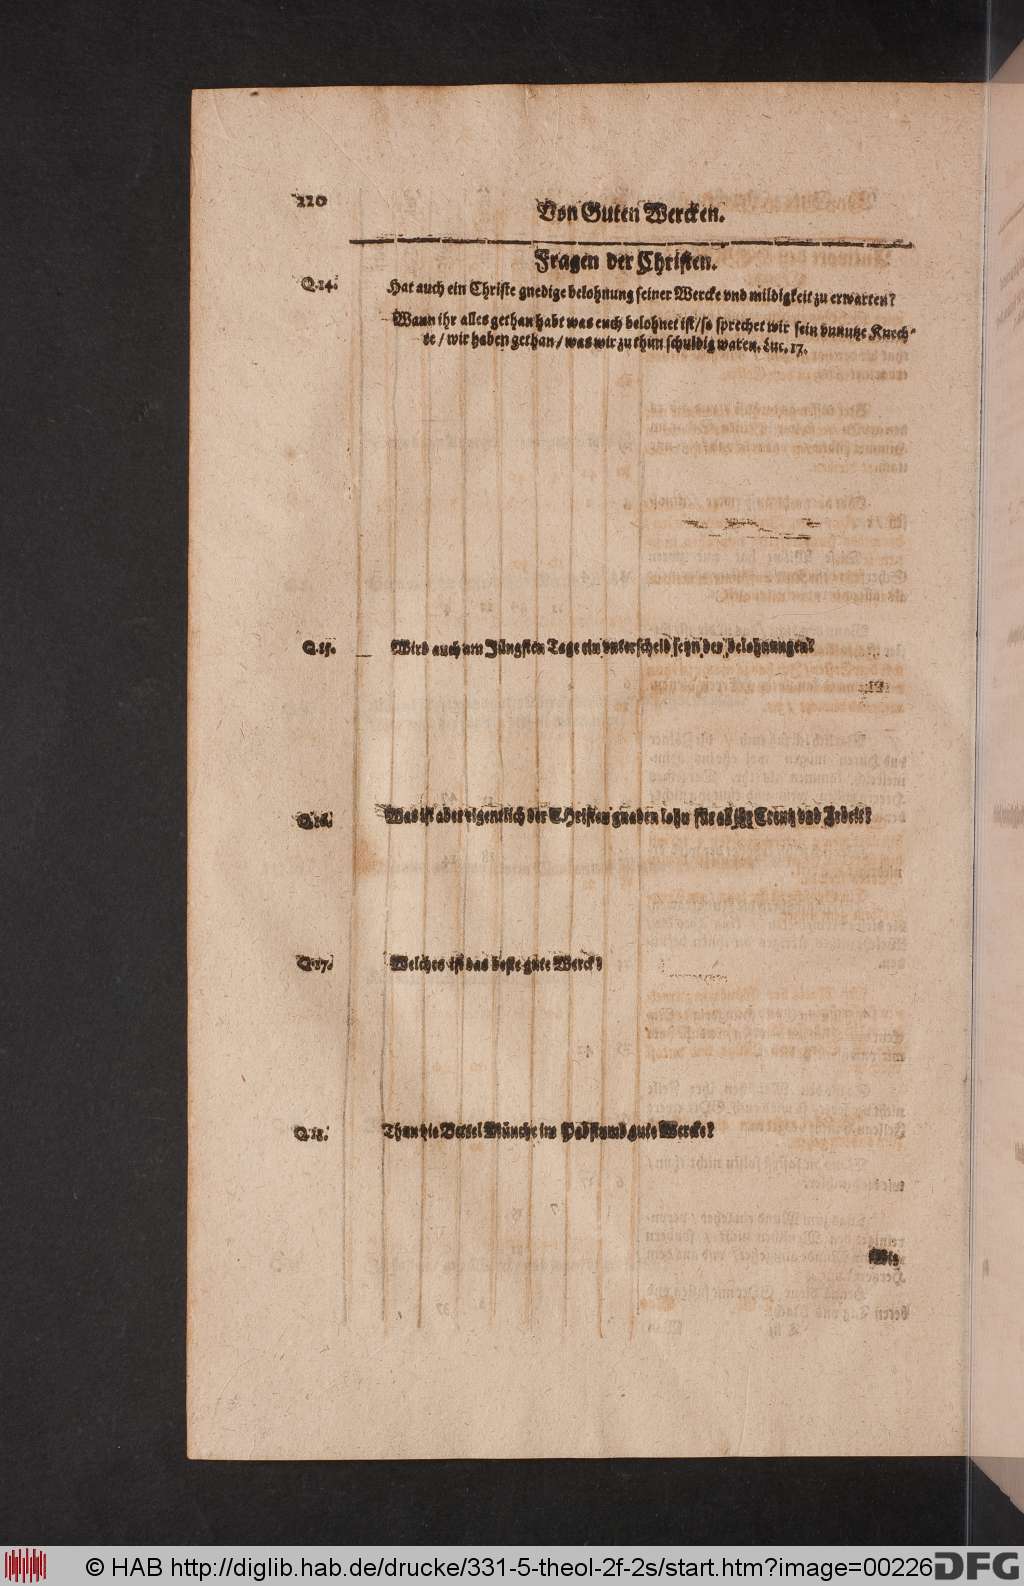 220
Von Guten Wercken.
Fragen der Christen.
Q.14. Hat auch ein Christe gnedige belohnung seiner Wercke vnd mildigkeit zu erwarten?
Wann ihr alles gethan habt was euch belohnet ist/ so sprechet wir sein vnnutze Knech-
te/ wir haben gethan/ was wir zu thun schuldig waren. Luc. 17.
Q.15. Wird auch am Jüngsten Tage ein vnterscheid seyn der belohnungen?
Q.16. Was ist aber eigentlich der CHristen gnaden lohn für all ihr Creutz vnd Arbeit?
Q.17. Welches ist das beste gute Werck?
Q.18. Thun die Bettel Münche im Pabstumb gute Wercke?
Wie
© HAB http://diglib.hab.de/drucke/331-5-theol-2f-2s/start.htm?image=00226
DFG